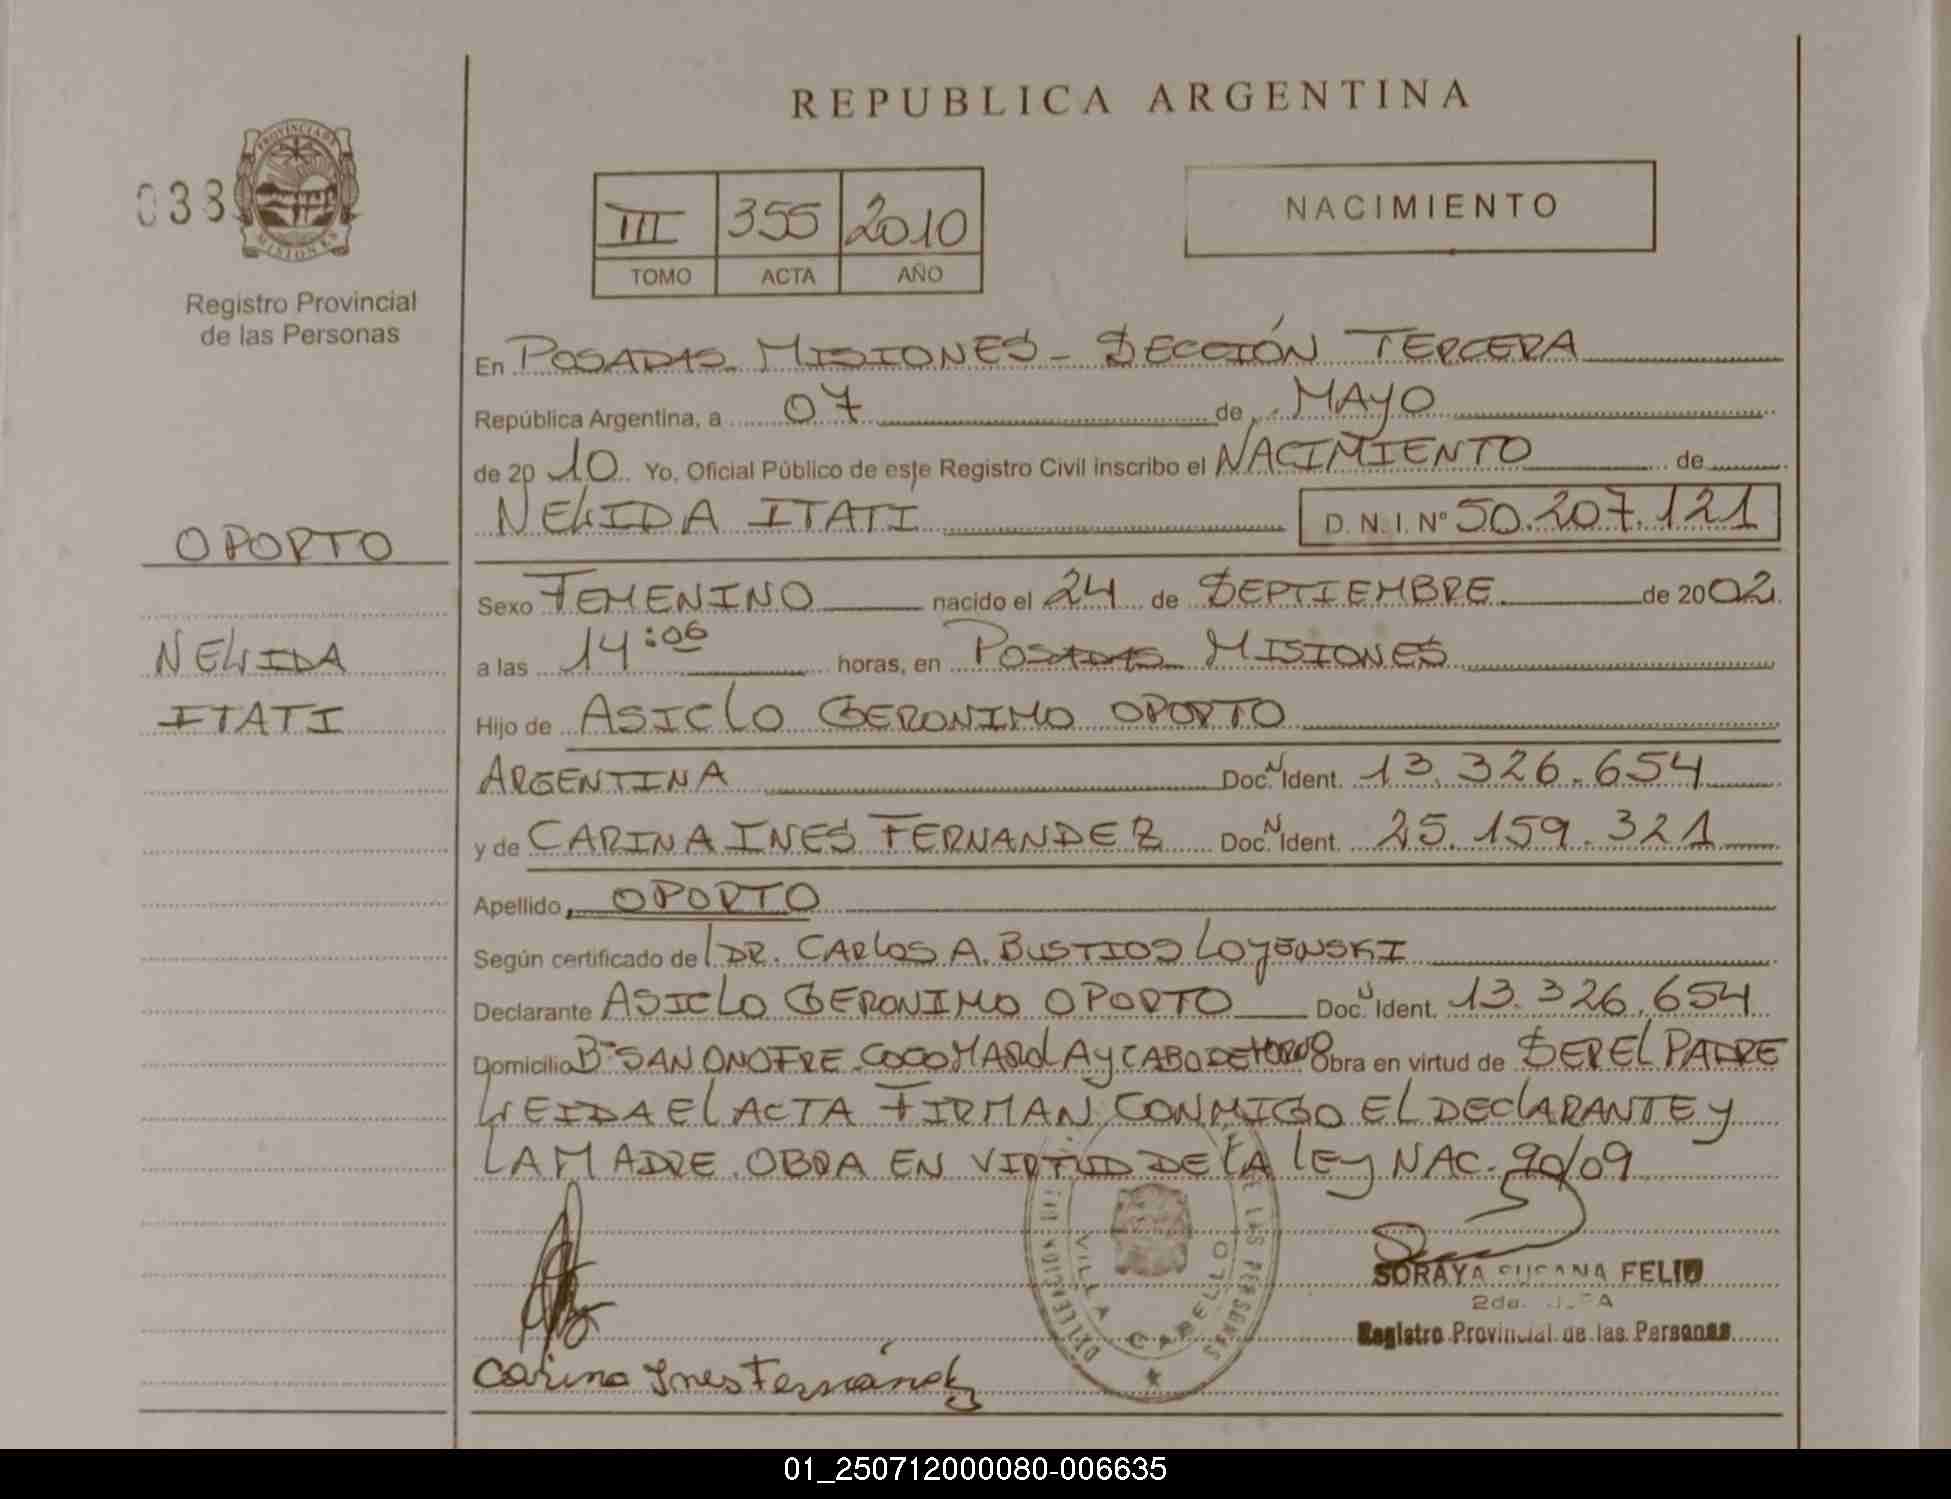 REPUBLICA ARGENTINA
038
PROVINCIA DE MISIONES
Registro Provincial
de las Personas
III 355 2010
TOMO ACTA AÑO
NACIMIENTO
En POSADAS MISIONES - SECCIÓN TERCERA
República Argentina, a 07 de MAYO
de 2010 Yo, Oficial Público de este Registro Civil inscribo el NACIMIENTO de
NELIDA ITATI D. N. I. Nº 50.207.121
OPORTO
NELIDA
ITATI
Sexo FEMENINO nacido el 24 de SEPTIEMBRE de 2002
a las 14:06 horas, en POSADAS MISIONES
Hijo de ASICLO GERONIMO OPORTO
ARGENTINA Doc. N Ident. 13.326.654
y de CARINA INES FERNANDEZ Doc. N Ident. 25.159.321
Apellido, OPORTO
Según certificado de DR. CARLOS A. BUSTIOS LOYENSKI
Declarante ASICLO GERONIMO OPORTO Doc. N Ident. 13.326.654
Domicilio Bº SAN ONOFRE COCOMAROLA Y CABO DE HORNO Obra en virtud de SER EL PADRE
LEIDA EL ACTA FIRMAN CONMIGO EL DECLARANTE Y
LA MADRE. OBRA EN VIRTUD DE LA LEY NAC. 90/09
DELEGACION DE LAS PERSONAS
VILLA CABELLO
SORAYA SUSANA FELIU
2da.
Registro Provincial de las Personas
Carina Ines Fernández
01_250712000080-006635